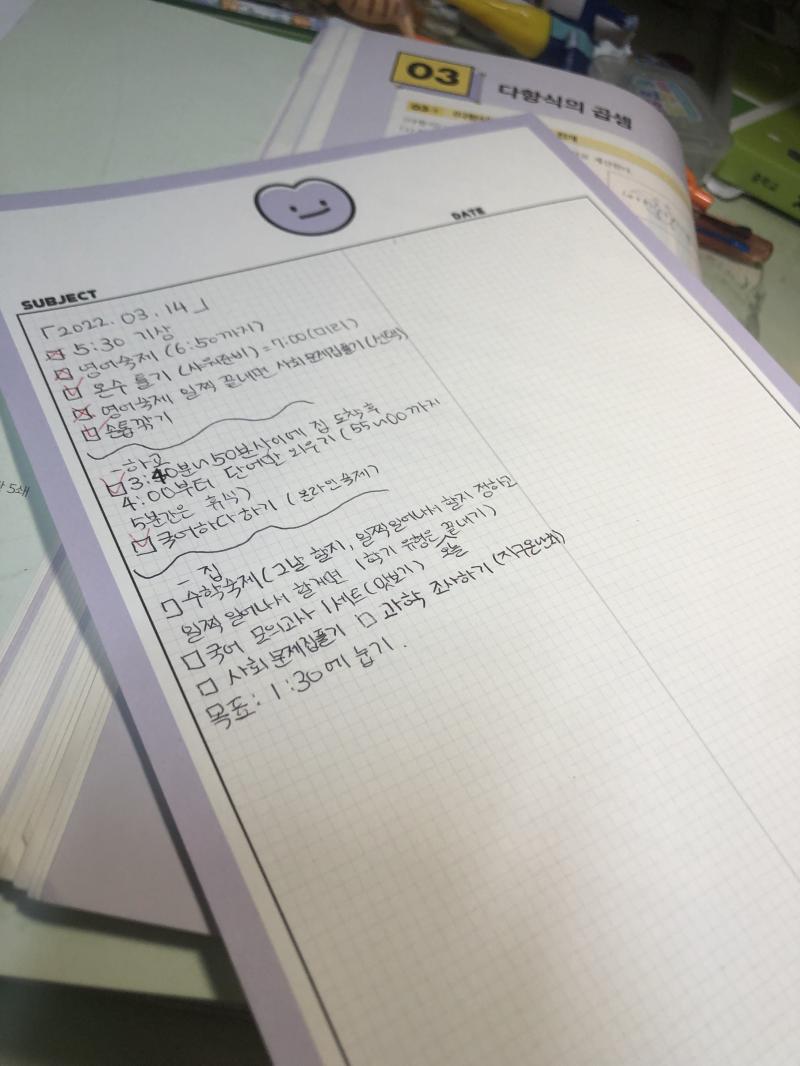 03
다항식의 곱셈
SUBJECT
DATE
「2022. 03. 14」
5:30 기상
영어숙제 (6:50까지)
온수 틀기 (샤워준비) = 7:00(미리)
영어숙제 일찍 끝내면 사회문제집풀기(선택)
손톱깎기
- 하교
3:40분~50분사이에 집 도착 후
4:00부터 단어만 외우기 (55~00까지
5분간은 휴식)
국어하다하기 (온라인숙제)
- 집
수학숙제(그날 할지, 일찍일어나서 할지 정하고
일찍 일어나서 할거면 1학기 유형은 오늘 끝내기)
국어 모의고사 1세트(맛보기)
과학 조사하기 (지구온난화)
사회문제집풀기
목표: 1:30에 눕기.
5쇄